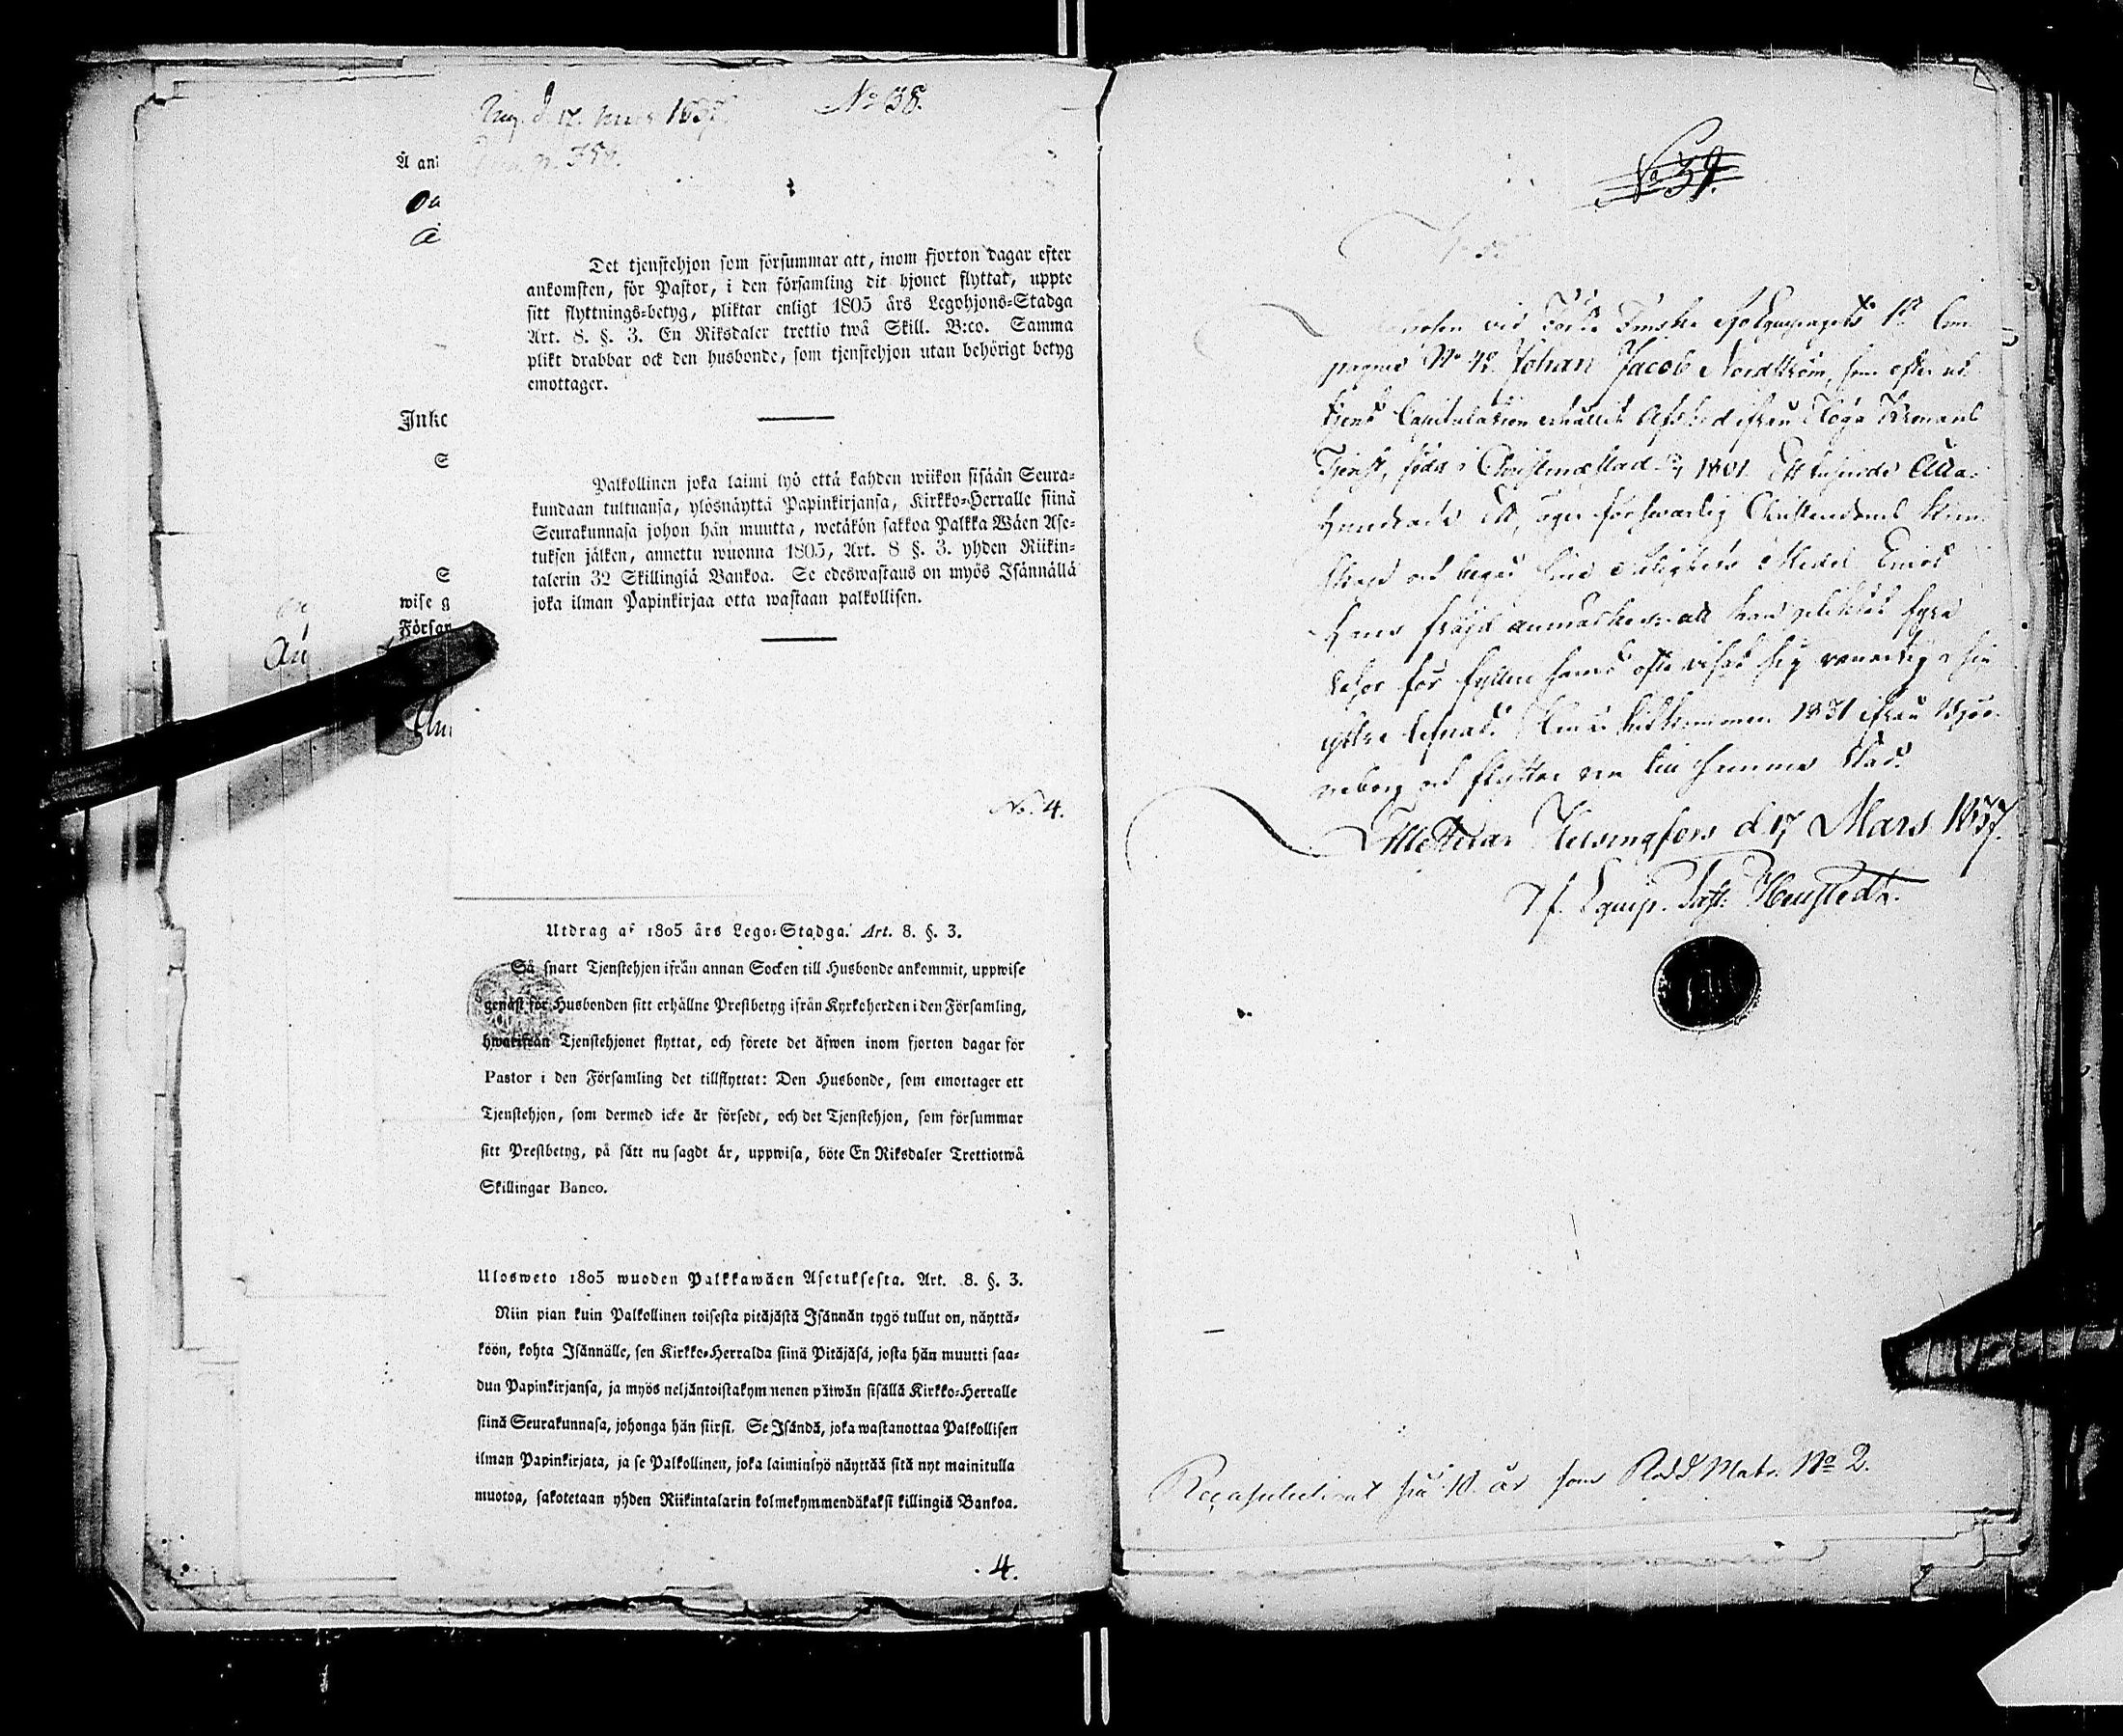 No 38.
d. 17. Mars 1837.
Å an
Det tjenstehjon som försummar att, inom fjorton dagar efter
ankomsten, för Pastor, i den församling dit hjonet flyttat, uppte
sitt flyttnings-betyg, pliktar enligt 1805 års Legohjons-Stadga
Art. 8. §. 3. En Riksdaler trettio twå Skill. B:co. Samma
plikt drabbar ock den husbonde, som tjenstehjon utan behörigt betyg
emottager.
Inko
Palkollinen joka laimi lyö että kahden wiikon sisään Seura-
kundaan tultuansa, ylösnäyttä Papinkirjansa, Kirkko-Herralle siinä
Seurakunnasa johon hän muutta, wetäkön sakkoa Palkka Wäen Ase-
tuksen jälken, annettu wuonna 1805, Art. 8 §. 3. yhden Riikin-
talerin 32 Skillingiä Bankoa. Se edeswastaus on myös Isännällä
joka ilman Papinkirjaa otta wastaan palkollisen.
wise g
Försam
No. 4.
Utdrag af 1805 års Lego-Stadga. Art. 8. §. 3.
Så snart Tjenstehjon ifrån annan Socken till Husbonde ankommit, uppwise
genast för Husbonden sitt erhållne Prestbetyg ifrån Kyrkoherden i den Församling,
hwarifrån Tjenstehjonet flyttat, och förete det äfwen inom fjorton dagar för
Pastor i den Församling det tillflyttat: Den Husbonde, som emottager ett
Tjenstehjon, som dermed icke är försedt, och det Tjenstehjon, som försummar
sitt Prestbetyg, på sätt nu sagdt är, uppwisa, böte En Riksdaler Trettiotwå
Skillingar Banco.
Ulosweto 1805 wuoden Palkkawäen Asetuksesta. Art. 8. §. 3.
Niin pian kuin Palkollinen toisesta pitäjästä Isännän tygö tullut on, näyttä-
köön, kohta Isännälle, sen Kirkko-Herralda siinä Pitäjäsä, josta hän muutti saa-
dun Papinkirjansa, ja myös neljäntoistakymnenen päiwän sisällä Kirkko-Herralle
siinä Seurakunnasa, johonga hän siirsi. Se Isändä, joka wastanottaa Palkollisen
ilman Papinkirjata, ja se Palkollinen, joka laiminlyö näyttää sitä nyt mainitulla
muotoa, sakotetaan yhden Riikintalarin kolmekymmendäkaksi killingiä Bankoa.
4.
No 39.
vid Finska Sjö Equipagets 1a Com-
pagnie No 42. Johan Jacob Nordström, som efter ut-
tjent Capitulation erhållit Afsked ifrån Höga Kronans
Tjenst, född i Christinæstad 1801. Ett tusende Åtta-
Hundrade Ett, äger försvarlig Christendoms Kun-
skap och begår sine Salighets Medel. Emot
Hans fräjd anmärkes: att han pliktat fyra
resor för fylleri samt ofta visat sig vanartig i sin
yttre lefnad. Han är hitkommen 1831 ifrån Björ-
neborg och flyttar nu till samma stad.
Attesterar Helsingfors d 17 Mars 1837.
T. f. Equip. Past.
Recapitulerat på 10 år som Matr. No 2.